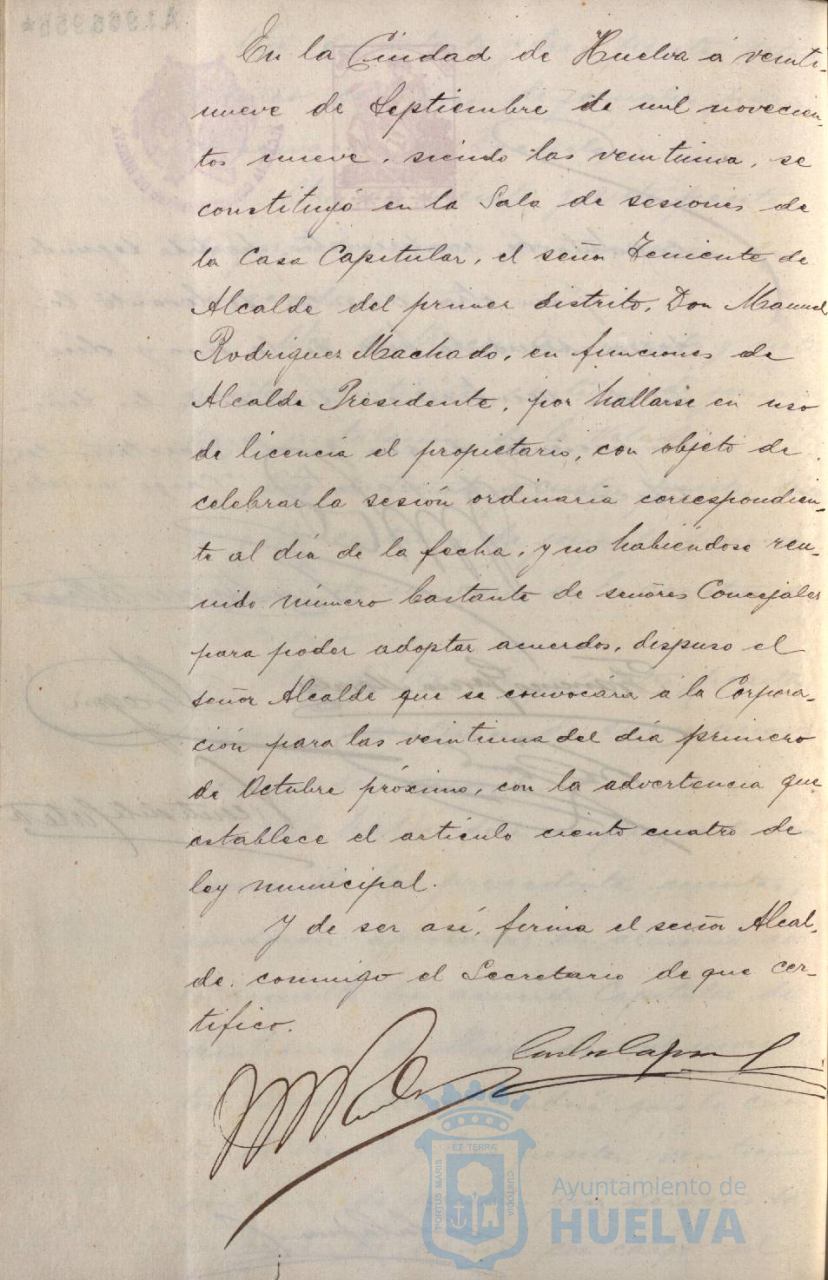 En la Ciudad de Huelva á veinti-
nueve de Septiembre de mil novecien-
tos nueve, siendo las veintiuna, se
constituyó en la Sala de sesiones de
la Casa Capitular, el señor Teniente de
Alcalde del primer distrito, Don Manuel
Rodriguez Machado, en funciones de
Alcalde Presidente, por hallarse en uso
de licencia el propietario, con objeto de
celebrar la sesión ordinaria correspondien-
te al día de la fecha, y no habiéndose reu-
nido número bastante de señores Concejales
para poder adoptar acuerdos, dispuso el
señor Alcalde que se convocára á la Corpora-
ción para las veintiuna del día primero
de Octubre próximo, con la advertencia que
establece el artículo ciento cuatro de
ley municipal.
Y de ser así, firma el señor Alcal-
de, conmigo el Secretario de que cer-
tifico.
PORTUS MARIS
ET TERRA
CUSTODIA
Ayuntamiento de
HUELVA